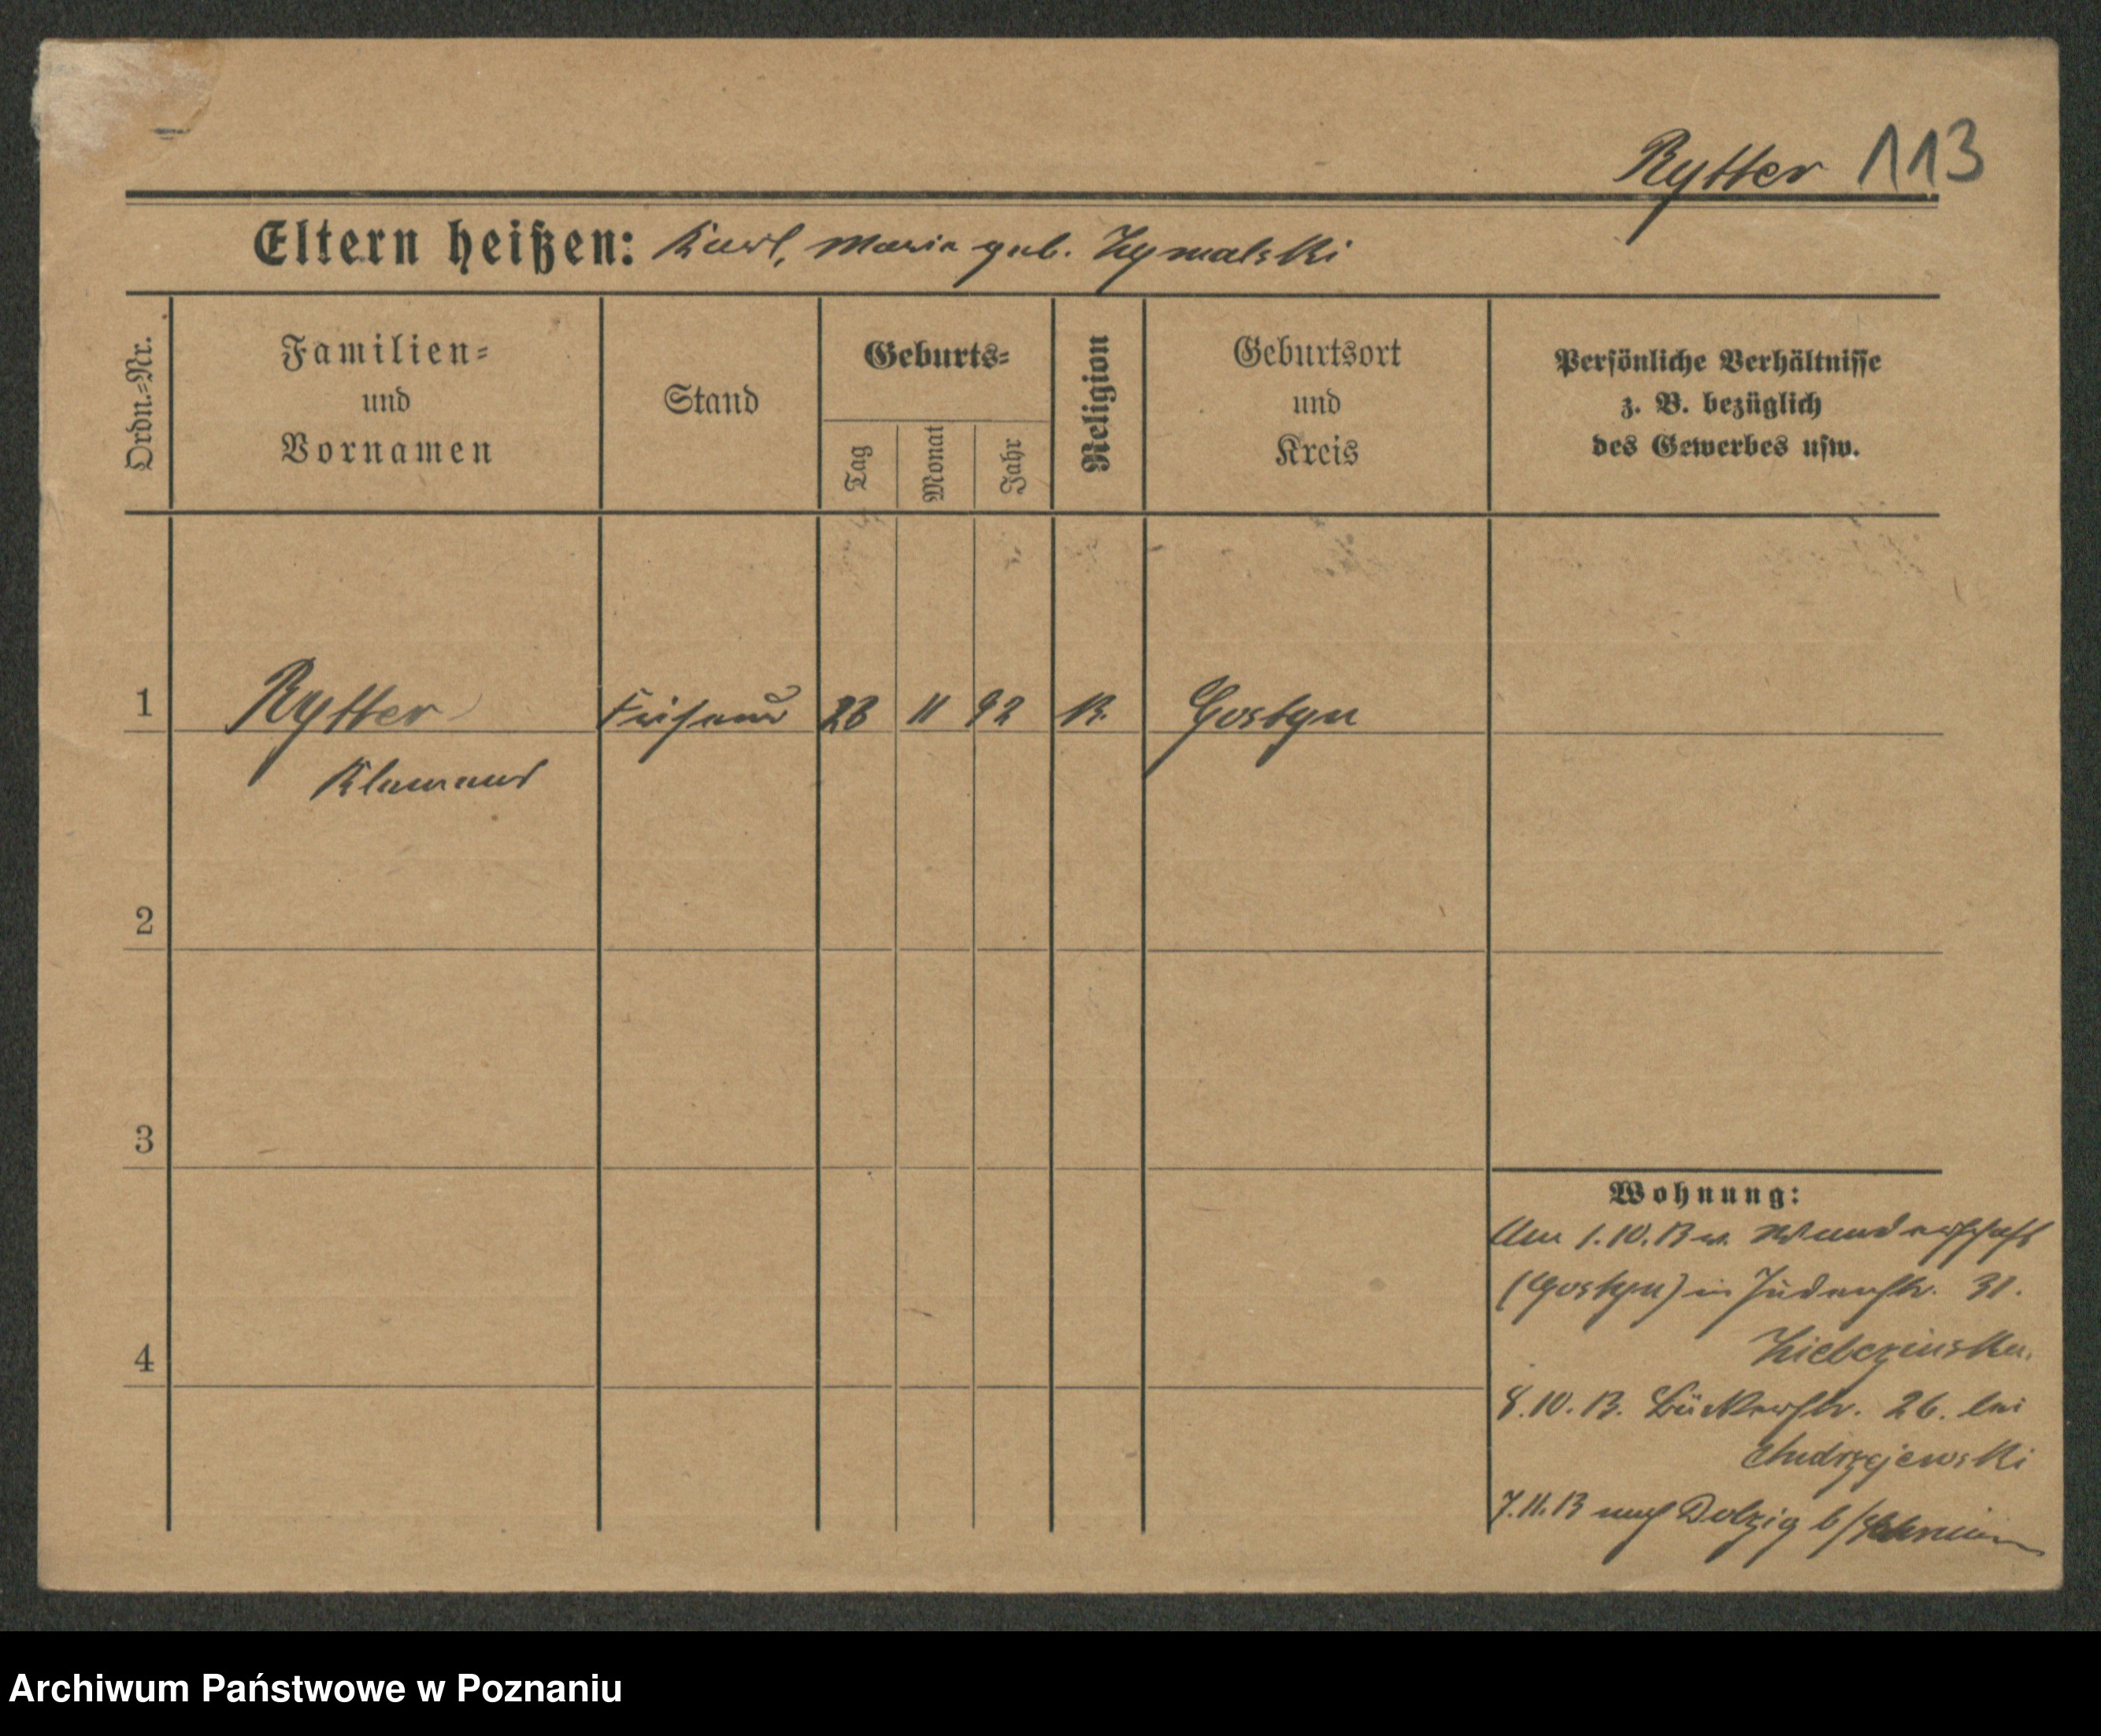 Rytter 113
Eltern heißen: Karl, Maria geb. Zymalski
Ordn.=Nr.
Familien=
und
Vornamen
Stand
Geburts=
Tag
Monat
Jahr
Religion
Geburtsort
und
Kreis
Persönliche Verhältnisse
z. B. bezüglich
des Gewerbes usw.
1 Rytter 23 11 92 K. Gostyn
2
3
4
Wohnung:
Am 1.10.13 v. Wanderschaft
(Gostyn) in Judenstr. 31.
8.10.13. Büttelstr. 26. bei
Andrzejewski
7.11.13 nach Dolzig b/Schrimm
Archiwum Państwowe w Poznaniu